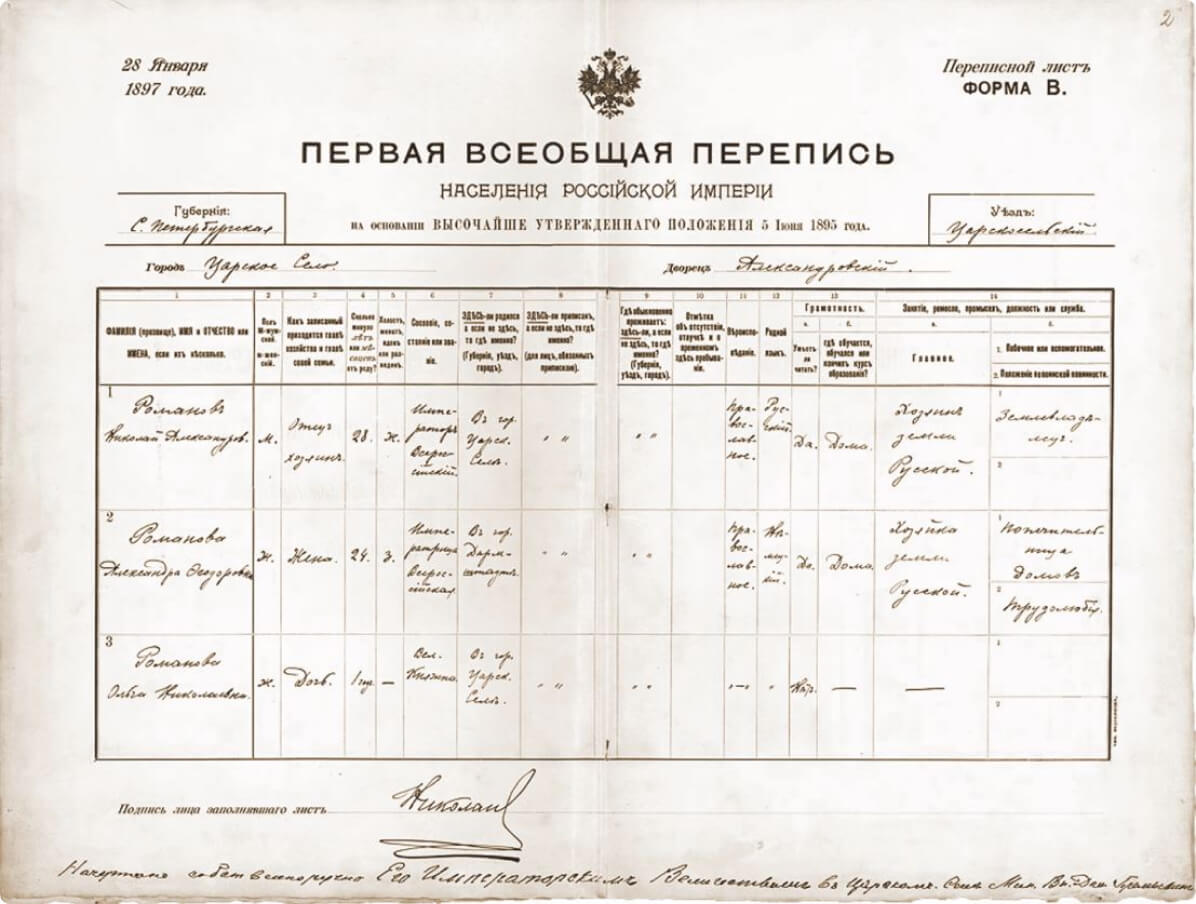 2
28 Января
1897 года.
Переписной листъ
ФОРМА В.
ПЕРВАЯ ВСЕОБЩАЯ ПЕРЕПИСЬ
НАСЕЛЕНІЯ РОССІЙСКОЙ ИМПЕРІИ
НА ОСНОВАНІИ ВЫСОЧАЙШЕ УТВЕРЖДЕННАГО ПОЛОЖЕНІЯ 5 Іюня 1895 года.
Губернія:
С. Петербургская
Уѣздъ:
Царскосельскій
Городъ Царское Село.
Дворецъ Александровскій.
1
ФАМИЛІЯ (прозвище), ИМЯ и ОТЧЕСТВО или
ИМЕНА, если ихъ нѣсколько.
2
Полъ
М-мужской.
Ж-женскій.
3
Какъ записанный
приходится главѣ
хозяйства и главѣ
своей семьи.
4
Сколько
минуло
лѣтъ
или мѣ-
сяцевъ
отъ роду?
5
Холостъ,
женатъ,
вдовъ
или раз-
веденъ.
6
Сословіе, со-
стояніе или зва-
ніе.
7
ЗДѢСЬ-ли родился
а если не здѣсь,
то гдѣ именно?
(Губернія, уѣздъ,
городъ).
8
ЗДѢСЬ-ли приписанъ,
а если не здѣсь, то гдѣ
именно?
(для лицъ, обязанныхъ
припискою).
9
Гдѣ обыкновенно
проживаетъ:
здѣсь-ли, а если
не здѣсь, то гдѣ
именно?
(Губернія,
уѣздъ, городъ).
10
Отмѣтка
объ отсутствіи,
отлучкѣ и о
временномъ
здѣсь пребыва-
ніи.
11
Вѣроиспо-
вѣданіе.
12
Родной
языкъ.
13
Грамотность.
а.
Умѣетъ
ли
читать?
б.
гдѣ обучается,
обучался или
кончилъ курсъ
образованія?
14
Занятіе, ремесло, промыселъ, должность или служба.
а.
Главное.
б.
1. Побочное или вспомогательное.
2. Положеніе по воинской повинности.
1
Романовъ
Николай Александров.
м.
Отецъ
хозяинъ.
28.
ж.
Импе-
раторъ
Всерос-
сійскій.
Въ гор.
Царск.
Селѣ.
" "
" "
Пра-
вос-
лав-
ное.
Рус-
скій.
Да.
Дома.
Хозяинъ
земли
Русской.
1
Землевладѣ-
лецъ.
2
2
Романова
Александра Ѳеодоровна
ж.
Жена.
24.
з.
Импе-
ратрица
Всерос-
сійская.
Въ гор.
Дарм-
штадтѣ.
" "
" "
Пра-
вос-
лав-
ное.
Нѣ-
мец-
кій.
Да.
Дома.
Хозяйка
земли
Русской.
1
Попечитель-
ница
Домовъ
2
Трудолюбія.
3
Романова
Ольга Николаевна.
ж.
Дочь.
1 годъ.
—
Вел.
Княжна.
Въ гор.
Царск.
Селѣ.
" "
" "
"—"
"
Нѣтъ.
—
—
1
2
Подпись лица заполнявшаго листъ
Николай
Начертано собственноручно Его Императорскимъ Величествомъ въ Царскомъ Селѣ Мин. Вн. Дѣл.